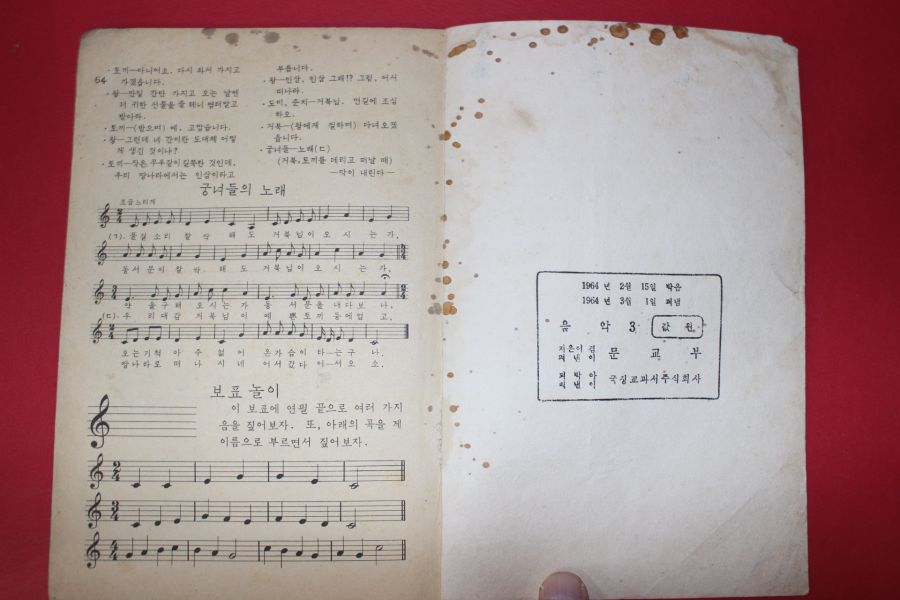 64
·토끼—아니어요. 다시 와서 가지고
가겠읍니다.
·왕—만일 간만 가지고 오는 날엔
더 귀한 선물을 줄 테니 염려말고
받아라.
·토끼—(받으며) 예, 고맙습니다.
·왕—그런데 네 간이란 도대체 어떻
게 생긴 것이냐?
·토끼—작은 무우같이 길쭉한 것인데,
우리 땅나라에서는 인삼이라고
부릅니다.
·왕—인삼, 인삼 그래!? 그럼, 어서
떠나라.
·도미, 준치—거북님. 먼길에 조심
하오.
·거북—(왕에게 절하며) 다녀오겠
읍니다.
·궁녀들—노래(ㄷ)
(거북, 토끼를 데리고 떠날 때)
—막이 내린다—
궁녀들의 노래
조금느리게
(ㄱ). 물실소리 찰싹 해도 거북님이오시는가,
동서문이찰싹. 해도 거북님이오시는가,
약을구해 오시는가 동서문을내다보나,
(ㄷ). 우리대감 거북님이 예쁜토끼등에업고,
오는기척 아주없어 온가슴이타는구나.
땅나라로 떠나시네 어서갔다이—서오소.
보표 놀이
이 보표에 연필 끝으로 여러 가지
음을 짚어보자. 또, 아래의 곡을 계
이름으로 부르면서 짚어보자.
1964년 2월 15일 박음
1964년 3월 1일 펴냄
음악 3
값 원
지은이 겸
펴낸이
문교부
국정교과서주식회사